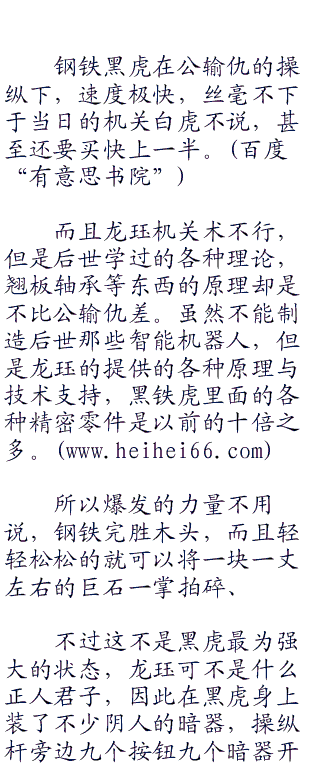 钢铁黑虎在公输仇的操
纵下，速度极快，丝毫不下
于当日的机关白虎不说，甚
至还要买快上一半。(百度
“有意思书院”)
而且龙珏机关术不行，
但是后世学过的各种理论，
翘板轴承等东西的原理却是
不比公输仇差。虽然不能制
造后世那些智能机器人，但
是龙珏的提供的各种原理与
技术支持，黑铁虎里面的各
种精密零件是以前的十倍之
多。(www.heihei66.com)
所以爆发的力量不用
说，钢铁完胜木头，而且轻
轻松松的就可以将一块一丈
左右的巨石一掌拍碎、
不过这不是黑虎最为强
大的状态，龙珏可不是什么
正人君子，因此在黑虎身上
装了不少阴人的暗器，操纵
杆旁边九个按钮九个暗器开